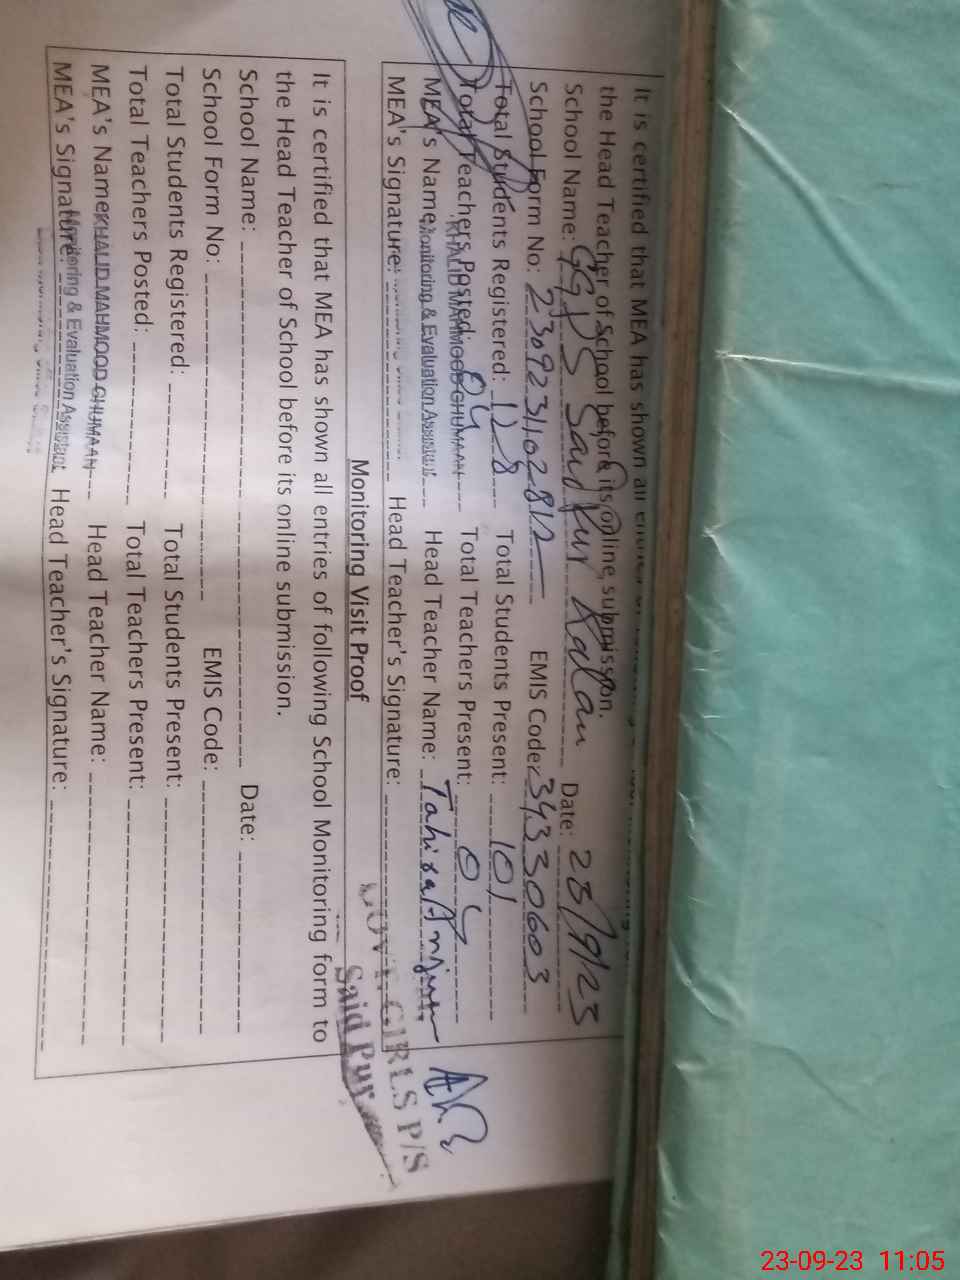 It is certified that MEA has shown all
the Head Teacher of School before its online submission.
School Name: GGPS Said Pur Kalan Date: 23/9/23
School Form No: 2309231102812 EMIS Code: 34330603
Total Students Registered: 128 Total Students Present: 101
Total Teachers Posted: 04 Total Teachers Present: 04
KHALID MAHMOOD GHUMAAN
MEA's Name: Head Teacher Name: Tahira Anjum
Monitoring & Evaluation Assistant
MEA's Signature: Head Teacher's Signature:
GOVT. GIRLS P/S
Said Pur
Monitoring Visit Proof
It is certified that MEA has shown all entries of following School Monitoring form to
the Head Teacher of School before its online submission.
School Name: Date:
School Form No: EMIS Code:
Total Students Registered: Total Students Present:
Total Teachers Posted: Total Teachers Present:
MEA's Name: KHALID MAHMOOD GHUMAAN Head Teacher Name:
Monitoring & Evaluation Assistant
MEA's Signature: Head Teacher's Signature:
23-09-23 11:05